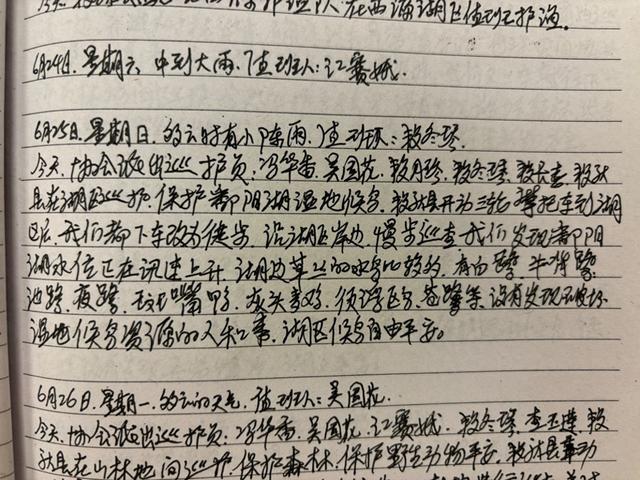 护渔队在西源湖区值班护渔。
6月24日.星期六.中到大雨.值班人:江赛娥.
6月25日.星期日.多云时有小阵雨.值班人:殷冬琴.
今天.协会派出巡护员.冯华香.吴国花.殷月珍.殷冬琴.殷长查.殷秋
县在湖区巡护.保护鄱阳湖湿地候鸟.殷秋县开为三轮摩托车到湖
区后.我们都下车改为徒步.沿湖区岸边慢步巡查.我们发现鄱阳
湖水位正在迅速上升.湖边草丛的水鸟比较多.有白鹭.牛背鹭.
池鹭.夜鹭.斑嘴鸭.灰头麦鸡.须浮鸥.苍鹭等.没有发现破坏
湿地候鸟资源的人和事.湖区候鸟自由平安。
6月26日.星期一.多云的天气.值班人:吴国花.
今天.协会派出巡护员.冯华香.吴国花.江赛娥.殷冬琴.李玉莲.殷
秋县在山林地间巡护.保护森林.保护野生动物平安.殷秋县